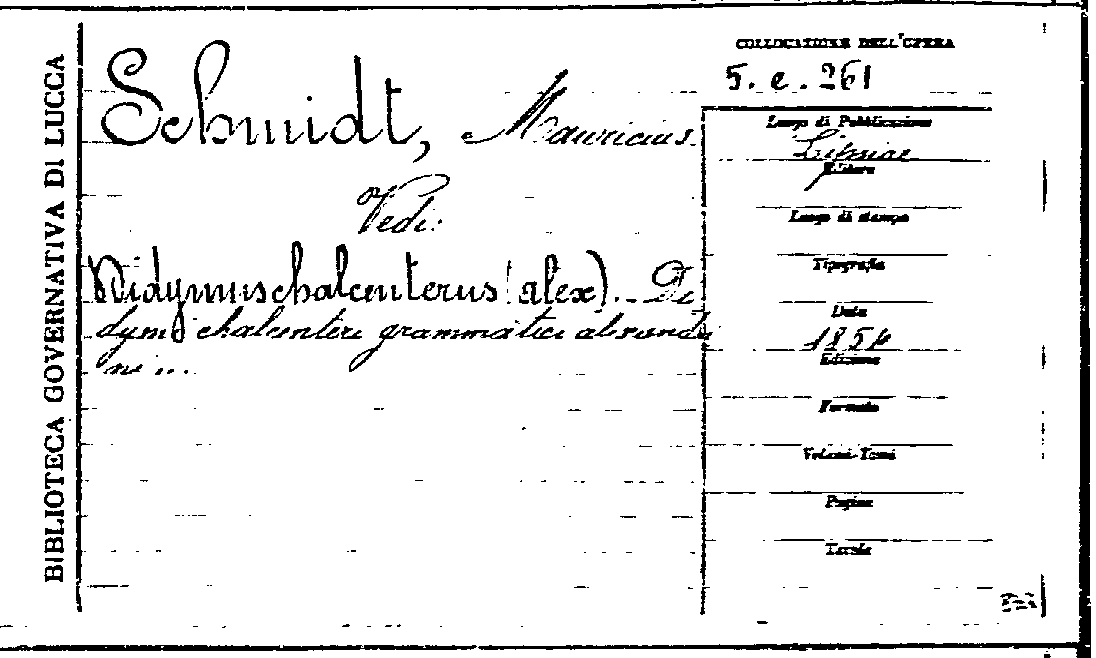 BIBLIOTECA GOVERNATIVA DI LUCCA
Schmidt, Mauricius.
Vedi:
Didymus chalcenterus (alex). Di
dymi chalcenteri grammatici alexandri
ni ...
COLLOCAZIONE DELL'OPERA
5. e. 261
Luogo di Pubblicazione
Lipsiae
Editore
Luogo di stampa
Tipografia
Data
1854
Edizione
Formato
Volumi-Tomi
Pagine
Tavole